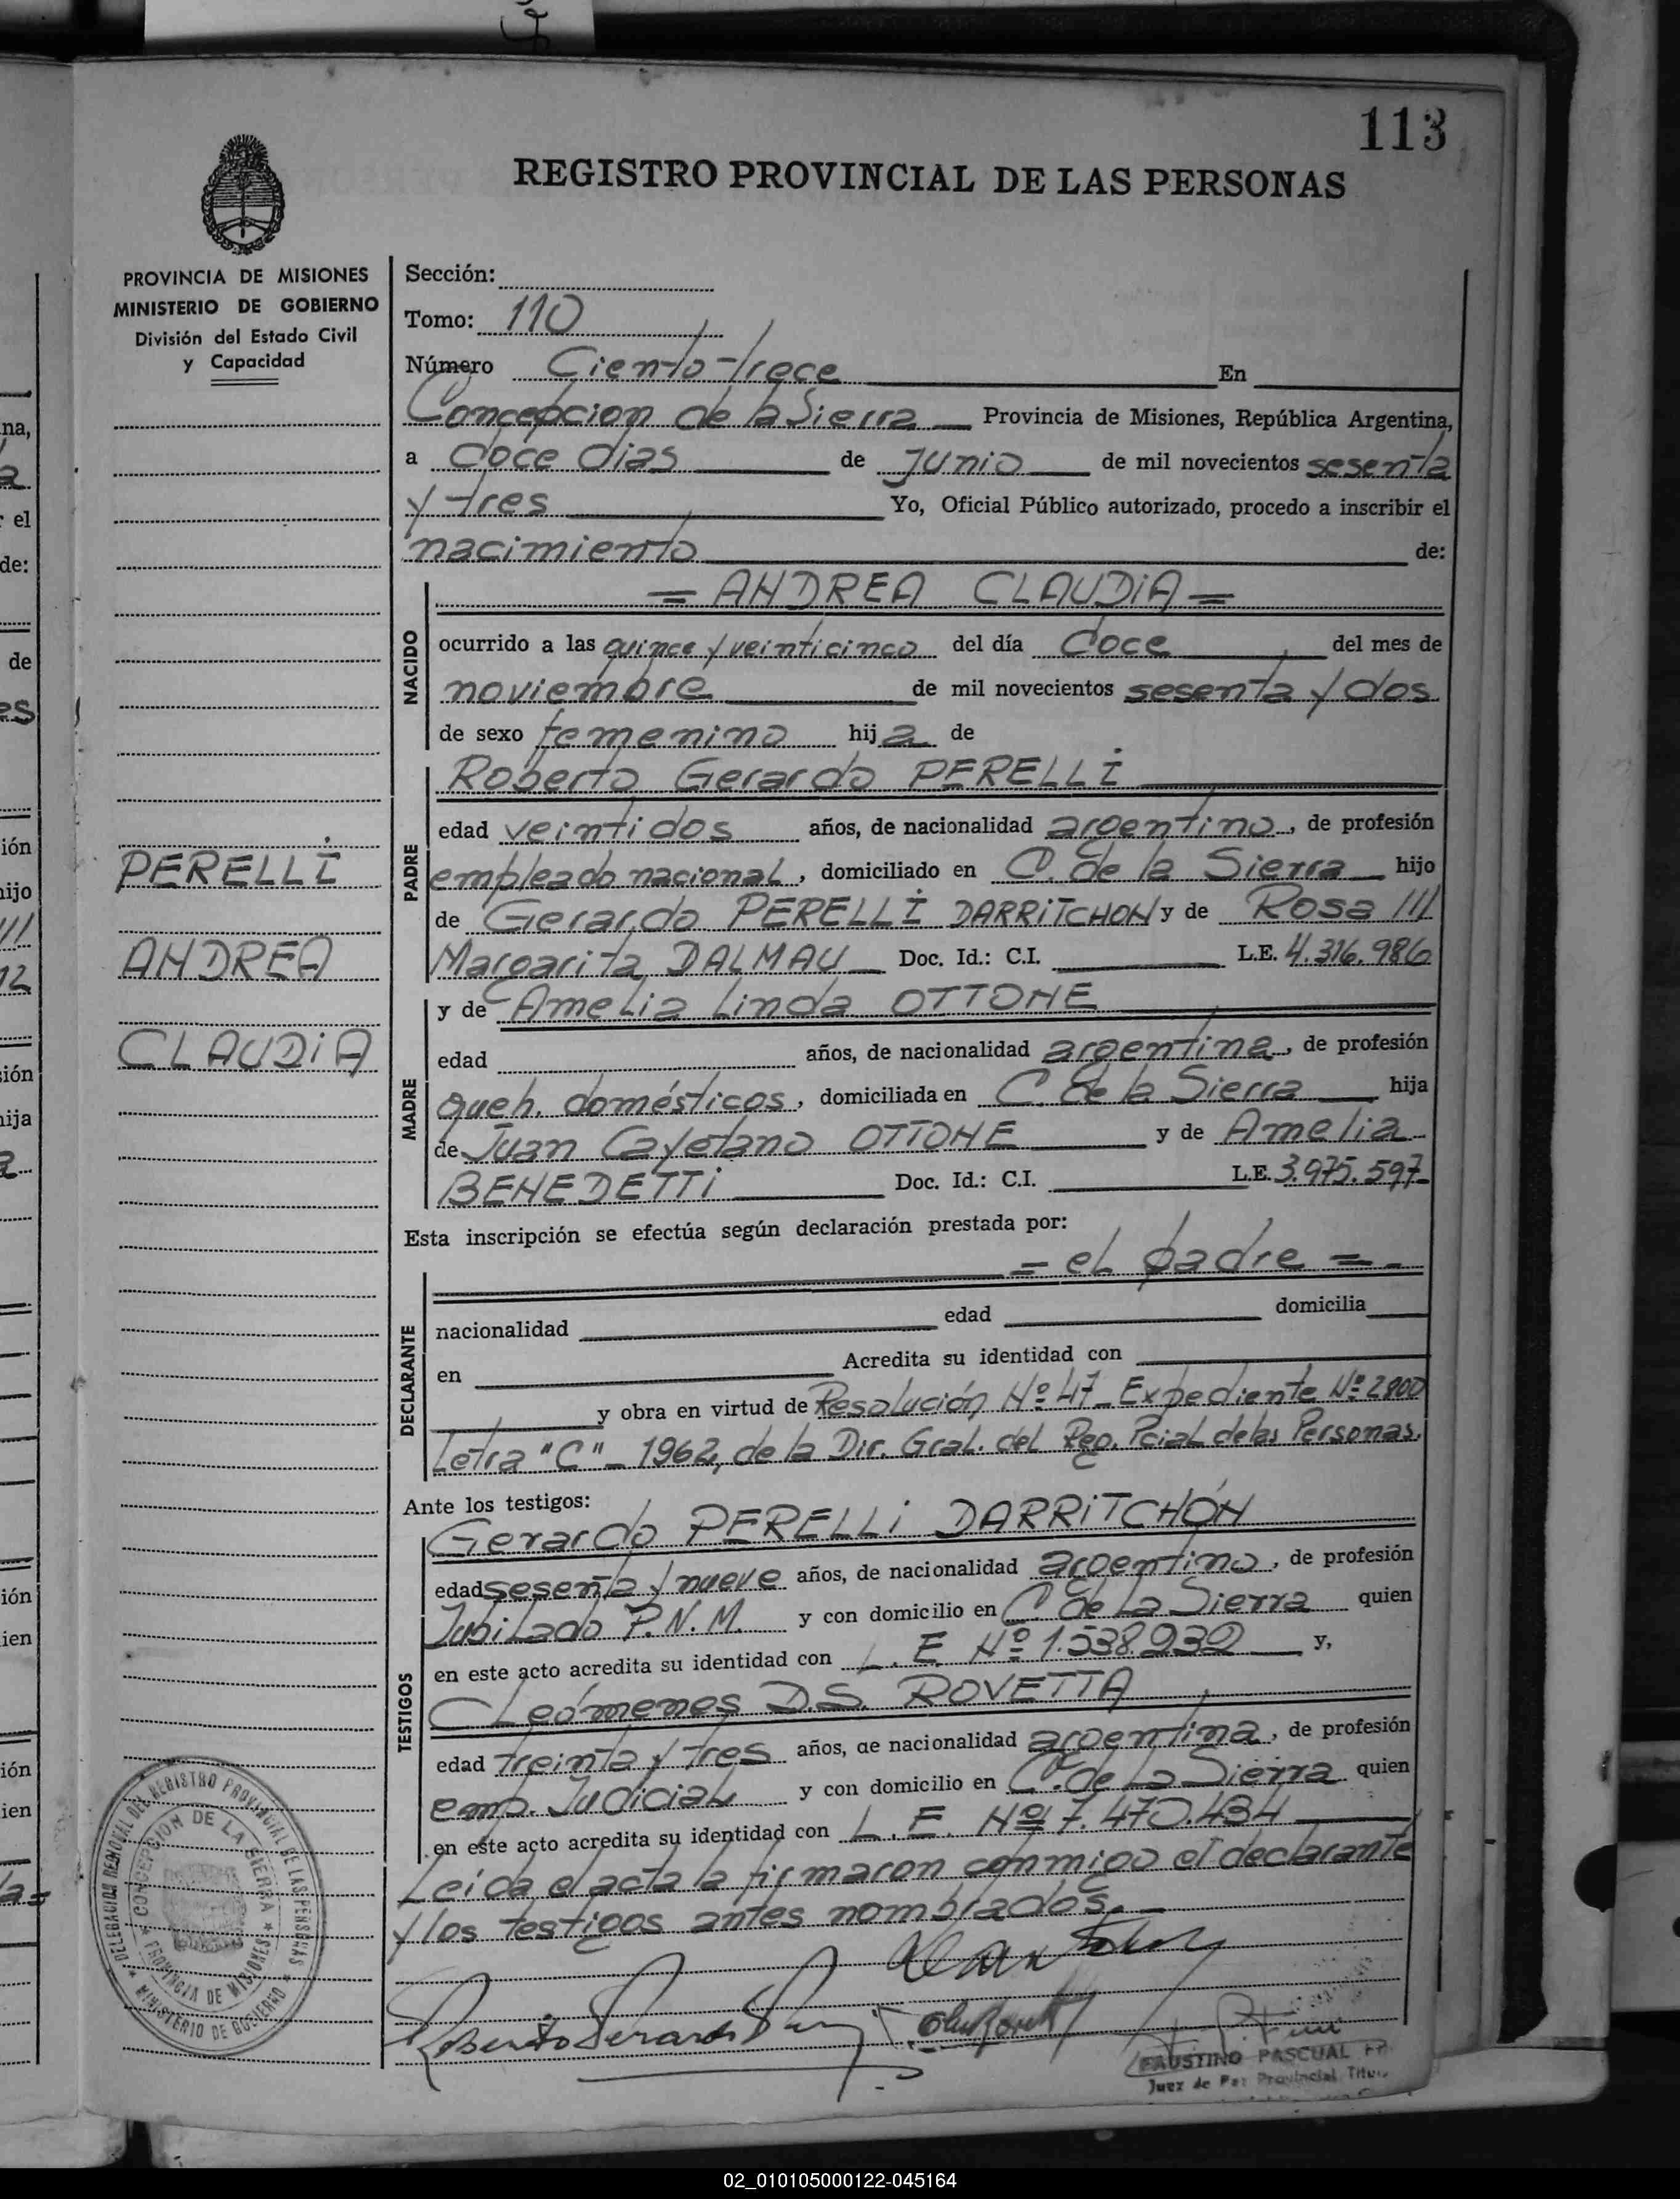 113
REGISTRO PROVINCIAL DE LAS PERSONAS
PROVINCIA DE MISIONES
MINISTERIO DE GOBIERNO
División del Estado Civil
y Capacidad
PERELLI
ANDREA
CLAUDIA
Sección:
Tomo: 110
Número Ciento trece En
Concepcion de la Sierra Provincia de Misiones, República Argentina,
a doce dias de Junio de mil novecientos sesenta
y tres Yo, Oficial Público autorizado, procedo a inscribir el
nacimiento de:
= ANDREA CLAUDIA =
NACIDO
ocurrido a las quince y veinticinco del día doce del mes de
noviembre de mil novecientos sesenta y dos
de sexo femenino hija de
Roberto Gerardo PERELLI
PADRE
edad veintidos años, de nacionalidad argentino, de profesión
empleado nacional, domiciliado en C. de la Sierra hijo
de Gerardo PERELLI DARRITCHON y de Rosa ///
Margarita DALMAU Doc. Id.: C.I. L.E. 4.316.986
y de Amelia Linda OTTONE
MADRE
edad años, de nacionalidad argentina, de profesión
queh. domésticos, domiciliada en C. de la Sierra hija
de Juan Cayetano OTTONE y de Amelia
BENEDETTI Doc. Id.: C.I. L.E. 3.975.597
Esta inscripción se efectúa según declaración prestada por:
= el padre =
DECLARANTE
nacionalidad edad domicilia
en Acredita su identidad con
y obra en virtud de Resolución Nº 47 - Expediente Nº 2800
Letra "C" - 1962, de la Dir. Gral. del Reg. Pcial de las Personas.
Ante los testigos:
Gerardo PERELLI DARRITCHÓN
TESTIGOS
edad sesenta y nueve años, de nacionalidad argentino, de profesión
Jubilado P.N.M. y con domicilio en C. de La Sierra quien
en este acto acredita su identidad con L. E. Nº 1.538.932 y,
Cleómenes D.S. ROVETTA
edad treinta y tres años, de nacionalidad argentina, de profesión
emp. Judicial y con domicilio en C. de La Sierra quien
en este acto acredita su identidad con L. E. Nº 7.470.434
Leída el acta la firmaron conmigo el declarante
y los testigos antes nombrados.
Roberto Gerardo
FAUSTINO PASCUAL
Juez de Paz Provincial
DELEGACION REGIONAL DEL REGISTRO PROVINCIAL DE LAS PERSONAS
MINISTERIO DE GOBIERNO
CONCEPCION DE LA SIERRA
PROVINCIA DE MISIONES
02_010105000122-045164